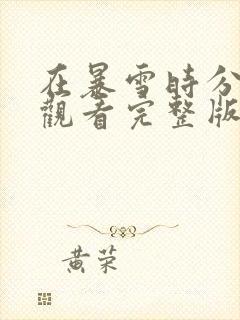 在暴雪時分
觀看完整版
黃荣